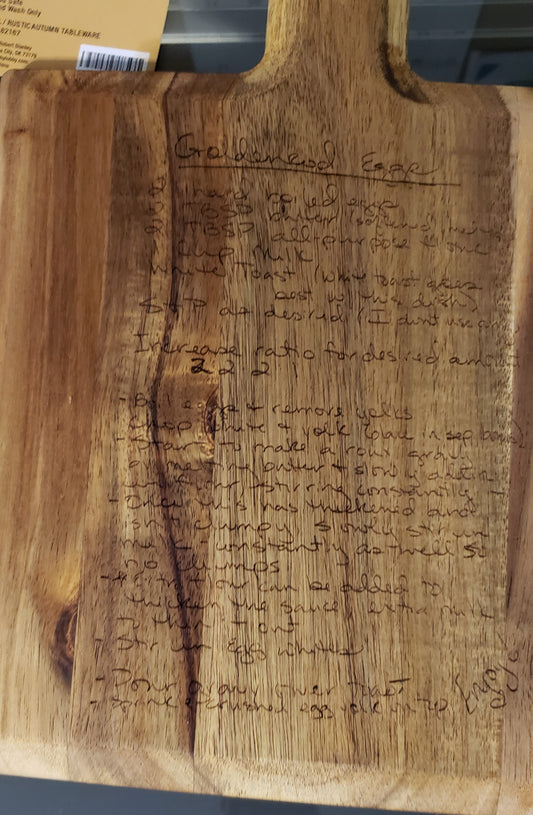 Wash Only
/ RUSTIC AUTUMN TABLEWARE
82167
Robert Stanley
City, OK 73179
Goldenrod Eggs
2 hard boiled eggs
2 TBSP butter
2 TBSP all-purpose flour
1 cup milk
White Toast (white toast goes
best w/ this dish)
S+P as desired (I don't use any
Increase ratio for desired amount
2 2 2 1
- Boil eggs + remove yolks
- Chop white + yolk (place in sep. bowls)
- Start to make a roux gravy
by melting butter + slowly adding
in flour, stirring constantly
- Once this has thickened and
isn't clumpy, slowly stir in
milk constantly as well so
no clumps
flour can be added to
thicken the sauce extra milk
to thin it out
- Stir in egg whites
- Pour gravy over toast
- Sprinkle crushed egg yolk on top
Enjoy!